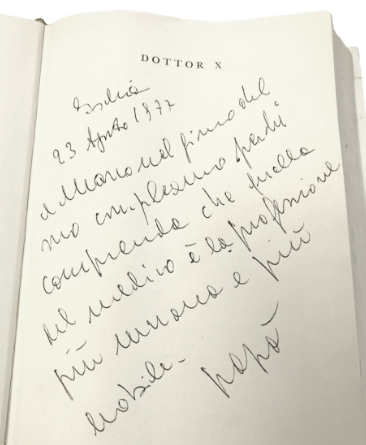 DOTTOR X
Ischia
23 Agosto 1977
a Marco nel giorno del
suo compleanno perché
comprenda che quella
del medico è la professione
più umana e più
nobile -
papà